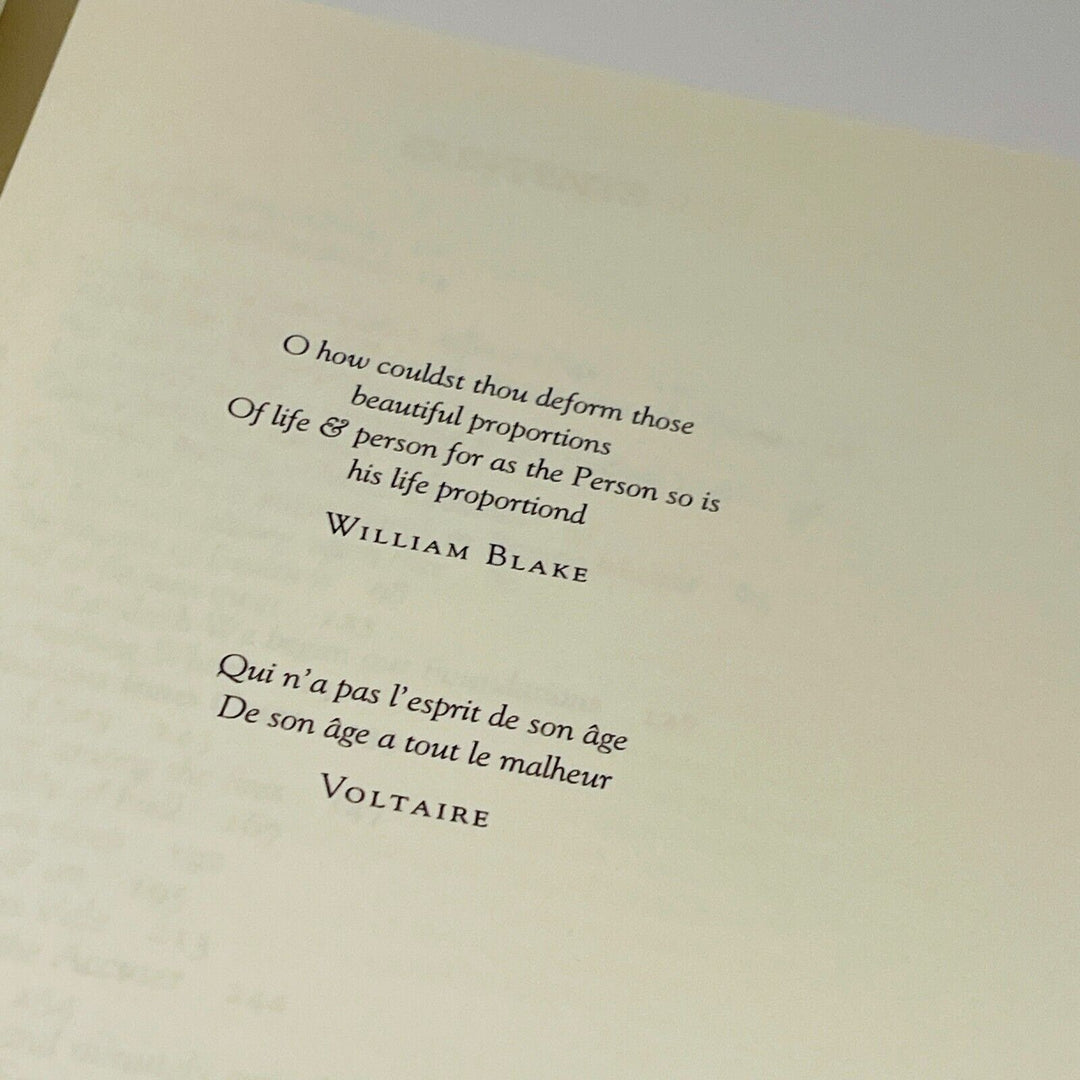 O how couldst thou deform those
beautiful proportions
Of life & person for as the Person so is
his life proportiond
WILLIAM BLAKE
Qui n’a pas l’esprit de son âge
De son âge a tout le malheur
VOLTAIRE